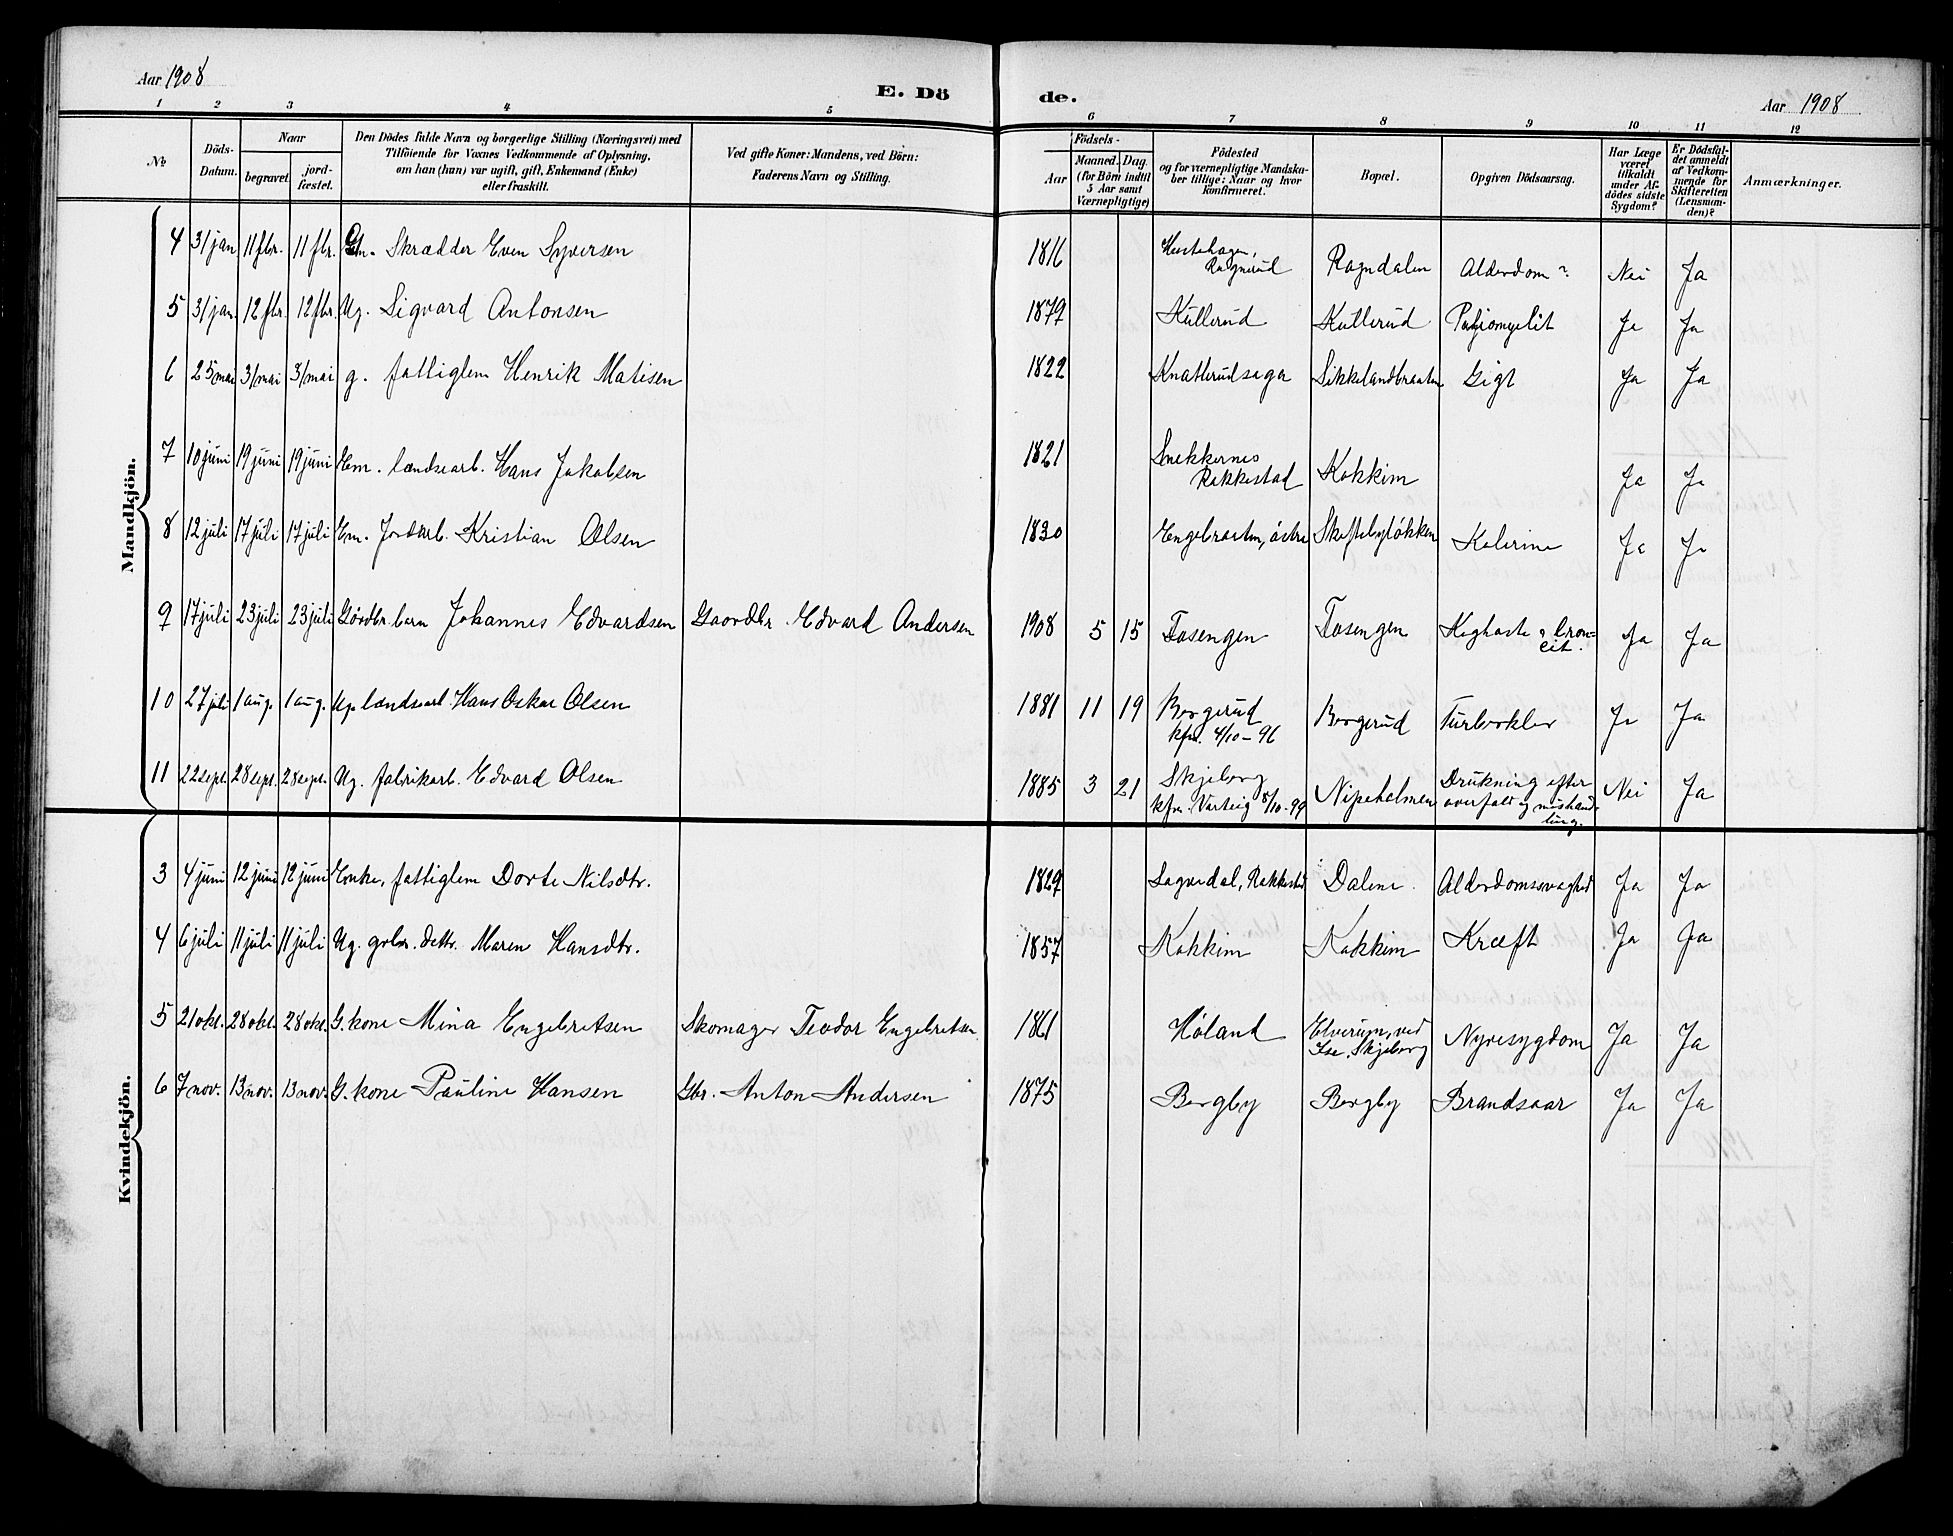 Aar 1908
E. Dö
de.
Aar 1908
1 2 3 4 5 6 7 8 9 10 11 12
No
Döds-Datum.
Naar
begravet.
jord-fæstet.
Den Dödes fulde Navn og borgerlige Stilling (Næringsvei) med
Tilföiende for Voxnes Vedkommende af Oplysning,
om han (hun) var ugift, gift, Enkemand (Enke)
eller fraskilt.
Ved gifte Koner: Mandens, ved Börn:
Faderens Navn og Stilling.
Födsels-
Aar
Maaned. Dag.
(for Börn indtil
5 Aar samt
Værnepligtige)
Födested
og for værnepligtige Mandska-
ber tillige: Naar og hvor
konfirmeret.
Bopæl.
Opgiven Dödsaarsag.
Har Læge
været
tilkaldt
under Af-
dödes sidste
Sygdom?
Er Dödsfal-
det anmeldt
af Vedkom-
mende for
Skifteretten
(Lensman-
den)?
Anmærkninger.
Mandkjön.
4 31 jan 11 fbr. 11 fbr. Em. Skrædder Even Syversen 1816 Ragnerud Ragndalen Alderdom? Nei Ja
5 31 jan. 12 fbr. 12 fbr. Ug. Sigvard Antonsen 1879 Kullerud Kullerud Ja Ja
6 25 mai 31 mai 31 mai g. fattiglem Henrik Matisen 1822 Knatterudsaga Sikkelandbraaten Gigt Ja Ja
7 10 juni 19 juni 19 juni Em. landsearb. Hans Jakobsen 1821 Snekkernes
Rakkestad Kokkim Ja Ja
8 12 juli 17 juli 17 juli Em. Jordarb. Kristian Olsen 1830 Engebraaten, östre Skoftebyløkken Kolerine Ja Ja
9 17 juli 23 juli 23 juli Gaardbr. barn Johannes Edvardsen Gaardbr. Edvard Andersen 1908 5 15 Tosengen Tosengen Kighoste & bron-
cit. Ja Ja
10 27 juli 1 aug. 1 aug. Ug. landsearb. Hans Oskar Olsen 1881 11 19 Borgerud
kfm. 4/10-96 Borgerud Turberkler Ja Ja
11 22 sept. 28 sept. 28 sept. Ug. fabrikarb. Edvard Olsen 1885 3 21 Skjeberg
kfm. Varteig 8/10-99 Nipeholmen Drukning efter
overfald og mishand-
ling. Nei Ja
Kvindekjön.
3 4 juni 12 juni 12 juni Enke, fattiglem Dorte Nilsdtr. 1829 Rakkestad Dalene. Alderdomssvaghed Ja Ja
4 6 juli 11 juli 11 juli Ug. grbr. dattr. Maren Hansdtr. 1857 Kokkim Kokkim Kræft Ja Ja
5 21 okt. 28 okt. 28 okt. G. kone Mina Engebretsen Skomager Teodor Engebretsen 1861 Høland Elverum, ved
Ise, Skjeberg Nyresygdom Ja Ja
6 7 nov. 13 nov. 13 nov. G. kone Pauline Hansen Gbr. Anton Andersen 1875 Bergby Bergby Brandsaar Ja Ja